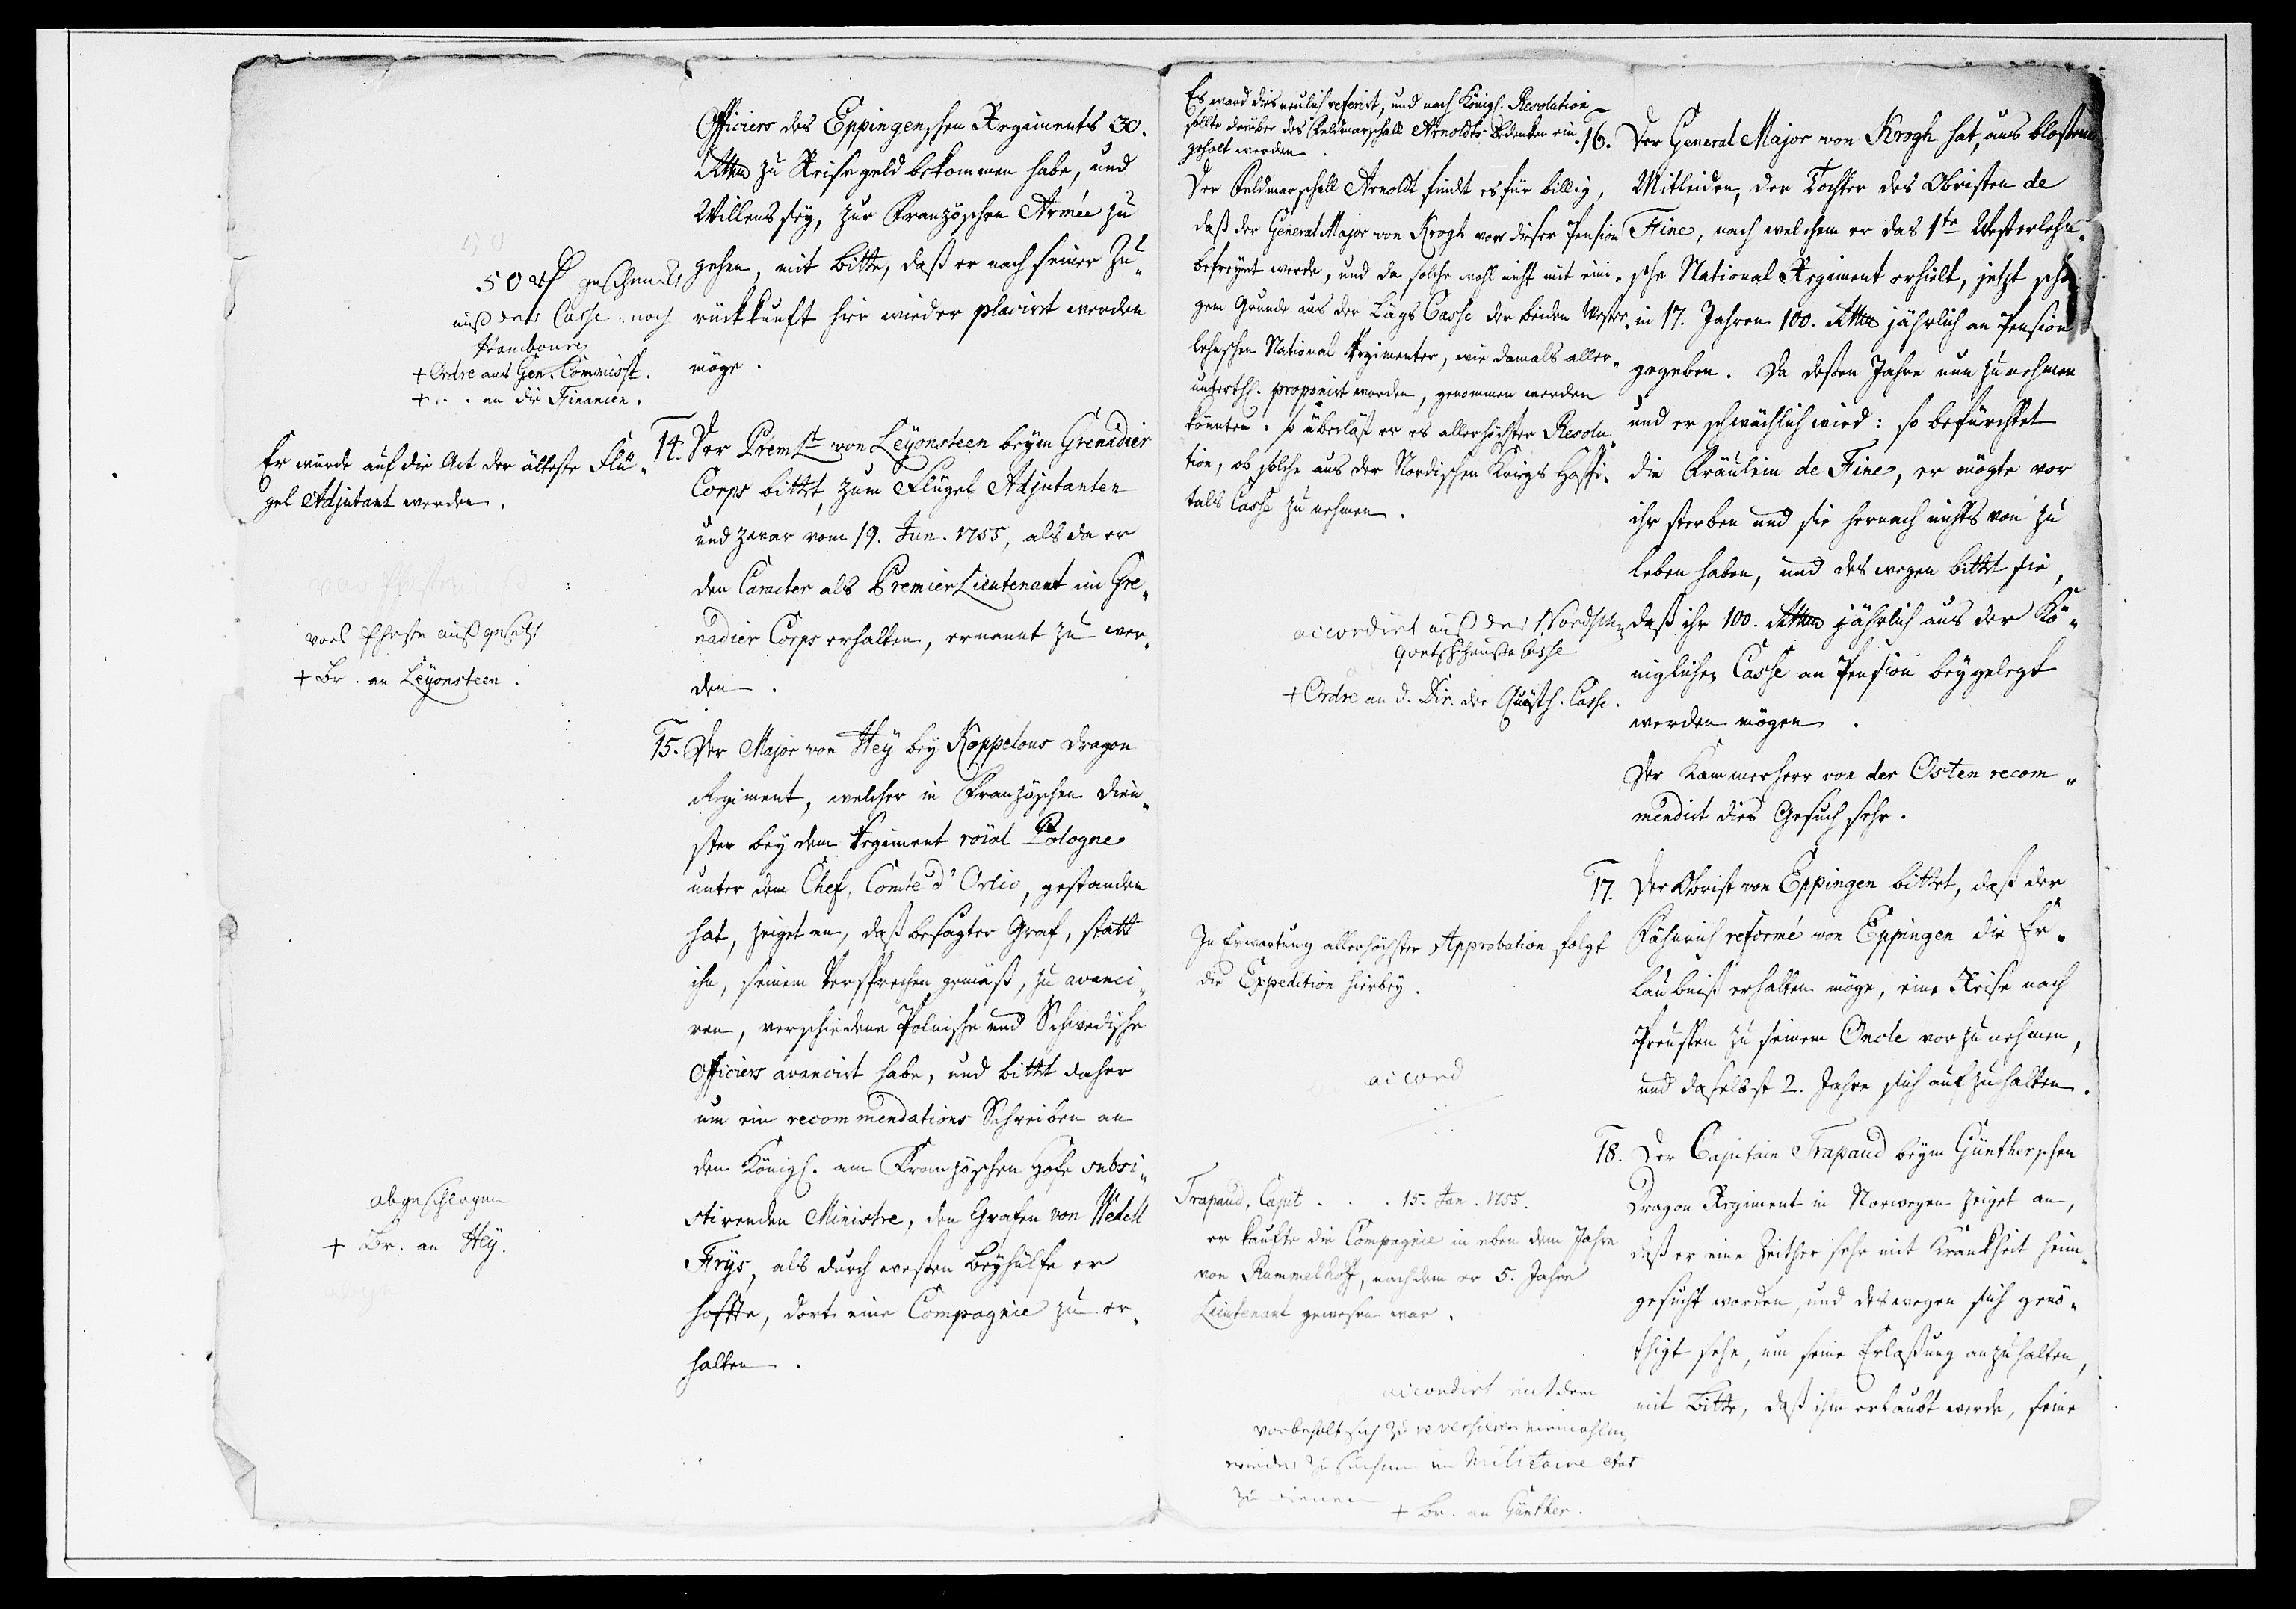 Officiers des Eppingenschen Regiments 30.
Rthlr zu Reisegeld bekommen habe, und
Willens sey, zur Französchen Armée zu
gehen, mit Bitte, daß er nach seiner Zu-
rückkunft hier wieder placirt werden
möge.
50 geschenckt
auß der Casse noch
Hambourg
+ Ordre ans Gen. Commisst.
+ . . . an die Financen.
14. Der Prem Lt von Leyonsteen beym Grenadier
Corps bittet, zum Flügel Adjutanten
und zwar vom 19. Jun. 1755, als da er
den Caracter als Premier Lieutenant im Gre-
nadier Corps erhalten, ernannt zu wer-
den.
Er würde auf die Art der älteste Flü-
gel Adjutant werden.
vors Ehrste auß gesetzt
+ Br. an Leyonsteen.
15. Der Major von Hey bey Koppelous Dragon
Regiment, welcher in Französchen Dien-
sten bey dem Regiment roïal Pologne
unter dem Chef, Comte d'Orlic, gestanden
hat, zeiget an, daß besagter Graf, statt
ihn, seinem Versprechen gemäß, zu avanci-
ren, verschiedene Polnische und Schwedische
Officiers avancirt habe, und bittet daher
um ein recommendations Schreiben an
den Königl. am Französchen Hofe subsi-
stirenden Ministre, den Grafen von Wedell
Frys, als durch wessen Beyhülfe er
hoffte, dort eine Compagnie zu er-
halten.
abgeschlagen
+ Br. an Hey.
Es ward dies neulich referirt, und nach Königl. Resolution
sollte darüber des Feldmarschall Arnoldts Bedenken ein-
geholt werden.
Der Feldmarschall Arnoldt findt es für billig,
daß der General Major von Krogh von dieser Pension
befreyet werde, und da solche wohl nicht mit eini-
gem Grunde aus der Lägs Casse der beiden Wester-
lehnschen National Regimenter, wie damals aller-
unterth. proponirt worden, genommen werden
könnten: so überläßt er es allerhöchster Resolu-
tion, ob solche aus der Nordischen Krigs Hospi-
tals Casse zu nehmen.
16. Der General Major von Krogh hat, aus bloßem
Mitleiden, der Tochter des Obristen de
Fine, nach welchem er das 1te Westerlehn-
sche National Regiment erhielt, jetzt schon
in 17. Jahren 100. Rthlr jährlich an Pension
gegeben. Da dessen Jahre nun zunehmen
und er schwächlich wird: so befürchtet
die Fräulein de Fine, er mögte vor
ihr sterben und sie hernach nichts von zu
leben haben, und deswegen bittet sie,
daß ihr 100. Rthlr jährlich aus der Kö-
niglichen Casse an Pension beygelegt
werden mögen.
Der Kammerherr von der Osten recom-
mendirt dies Gesuch sehr.
accordirt auß der Nordschen
Casse
+ Ordre an d. Dir. der Quästh. Casse.
17. Der Obrist von Eppingen bittet, daß der
Fähnrich reformé von Eppingen die Er-
laubniß erhalten möge, eine Reise nach
Preussen zu seinem Oncle vorzunehmen,
und daselbst 2. Jahre sich aufzuhalten.
In Erwartung allerhöchster Approbation folgt
die Expedition hierbey.
accord
18. Der Capitain Trapaud beym Güntherschen
Dragon Regiment in Norwegen zeiget an,
daß er eine Zeither sehr mit Krankheit heim-
gesucht worden, und deswegen sich genö-
thigt sehe, um seine Erlaßung anzuhalten,
mit Bitte, daß ihm erlaubt werde, seine
Trapaud, Capit . . . 15. Jan. 1755.
er kaufte die Compagnie in eben dem Jahre
von Rummelhoff, nachdem er 5. Jahre
Lieutenant gewesen war.
accordirt mit dem
vorbehalt sich zu reversiren niemahlen
wieder zu suchen im Militaire etat
zu dienen
+ Br. an Günther.